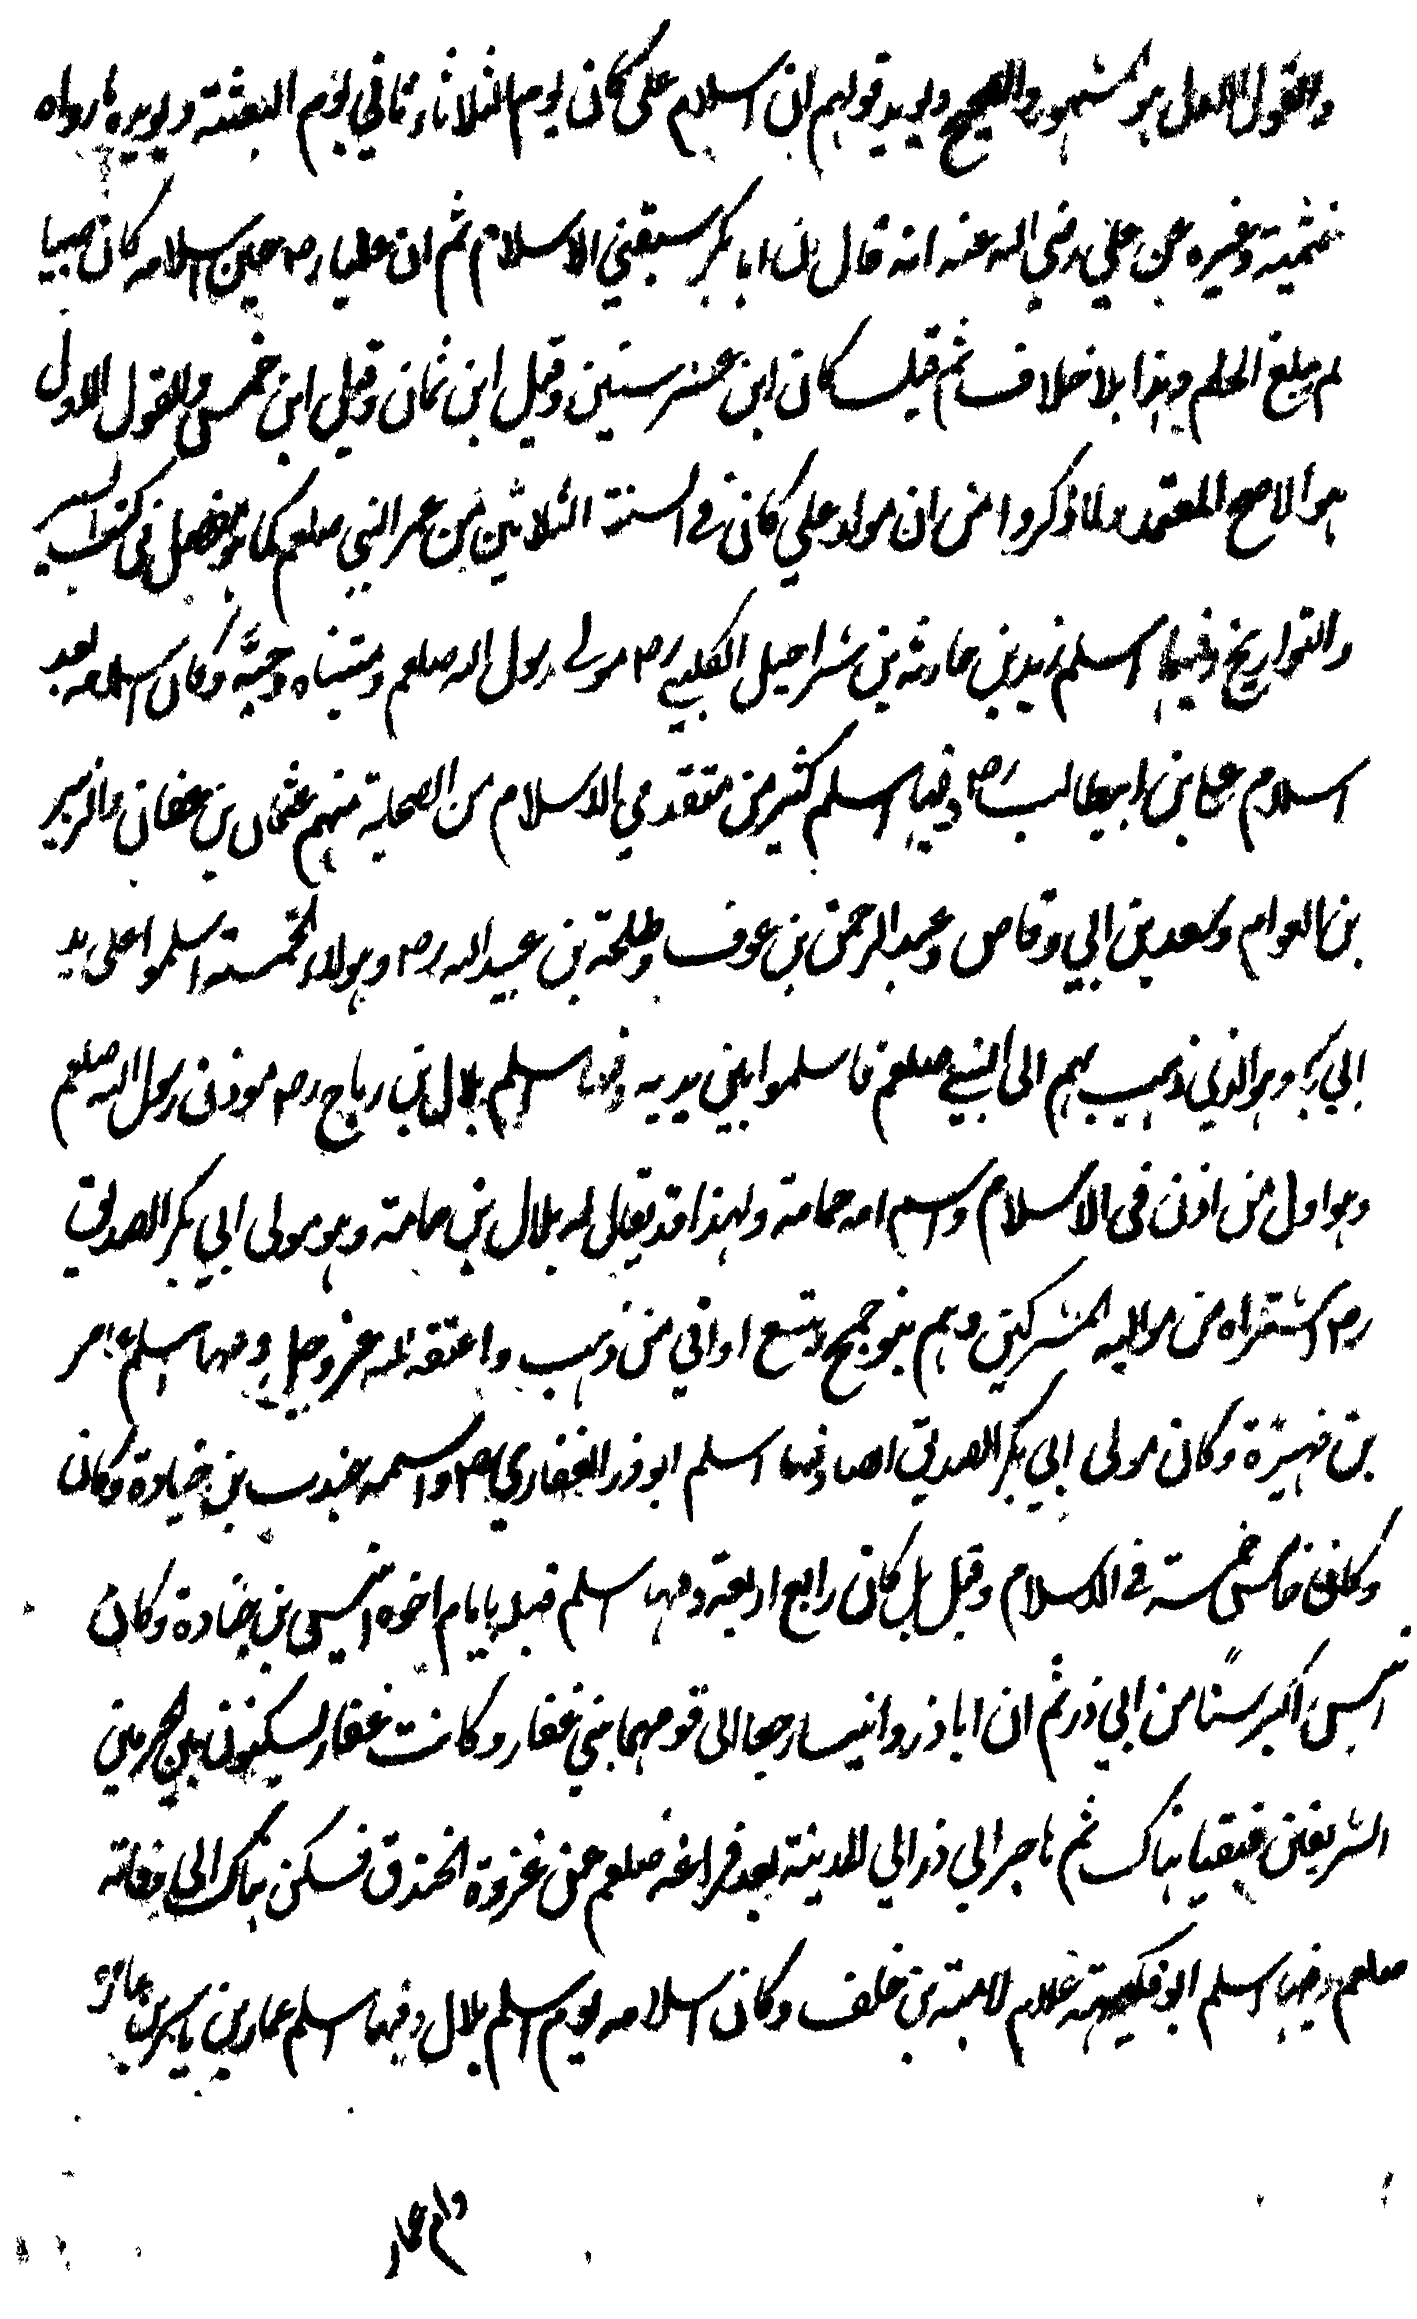 والقول الاول هو المشهور والصحيح ويويد قولهم ان اسلام على كان يوم الثلاثاء ثاني يوم البعثة ويويده ما رواه
خثيمة وغيره عن علي رضي الله عنه انه قال ان ابا بكر سبقني الاسلام ثم ان عليا رضـ حين اسلامه كان صبيا
لم يبلغ الحلم وهذا بلا خلاف ثم قيل كان ابن عشر سنين وقيل ابن ثمان وقيل ابن خمس والقول الاول
هو الاصح المعتمد ولما ذكروا من ان مولد علي كان في السنة الثلاثين من عمر النبي صلعم كما هو مفصل في كتب السير
والتواريخ وفيها اسلم زيد بن حارثة بن شراحيل الكلبي رضـ مولى رسول الله صلعم ومتبناه وحبّه وكان اسلامه بعد
اسلام علي بن ابيطالب رضـ وفيها اسلم كثير من متقدمي الاسلام من الصحابة منهم عثمان بن عفان والزبير
بن العوام وسعد بن ابي وقاص وعبد الرحمن بن عوف وطلحة بن عبيد الله رضـ وهولاء الخمسة اسلموا على يد
ابي بكر وهو الذي ذهب بهم الى النبي صلعم فاسلموا بين يديه وفيها اسلم بلال بن رباح رضـ موذن رسول الله صلعم
وهو اول من اذن في الاسلام واسم امه حمامة ولهذا قد يقال له بلال بن حمامة وهو مولى ابي بكر الصديق
رضـ اشتراه من مواليه المشركين وهم بنو جمح بتسع اواقي من ذهب واعتقه لله عز وجل وفيها اسلم عامر
بن فهيرة وكان مولى ابي بكر الصديق ايضا وفيها اسلم ابو ذر الغفاري رضـ واسمه جندب بن جنادة وكان
وكان خامس خمسة في الاسلام وقيل بل كان رابع اربعة وفيها اسلم قبله بايام اخوه انيس بن جنادة وكان
انيس اكبر سنًا من ابي ذر ثم ان ابا ذر وانيسا رجعا الى قومهما بني غفار وكانت غفار يسكنون بين الحرمين
الشريفين فبقيا هناك ثم هاجر ابي ذر الي المدينة بعد فراغه صلعم عن غزوة الخندق فسكن هناك الى وفاته
صلعم وفيها اسلم ابو فكيهة غلام لامية بن خلف وكان اسلامه يوم اسلم بلال وفيها اسلم عمار بن ياسر بن عامر